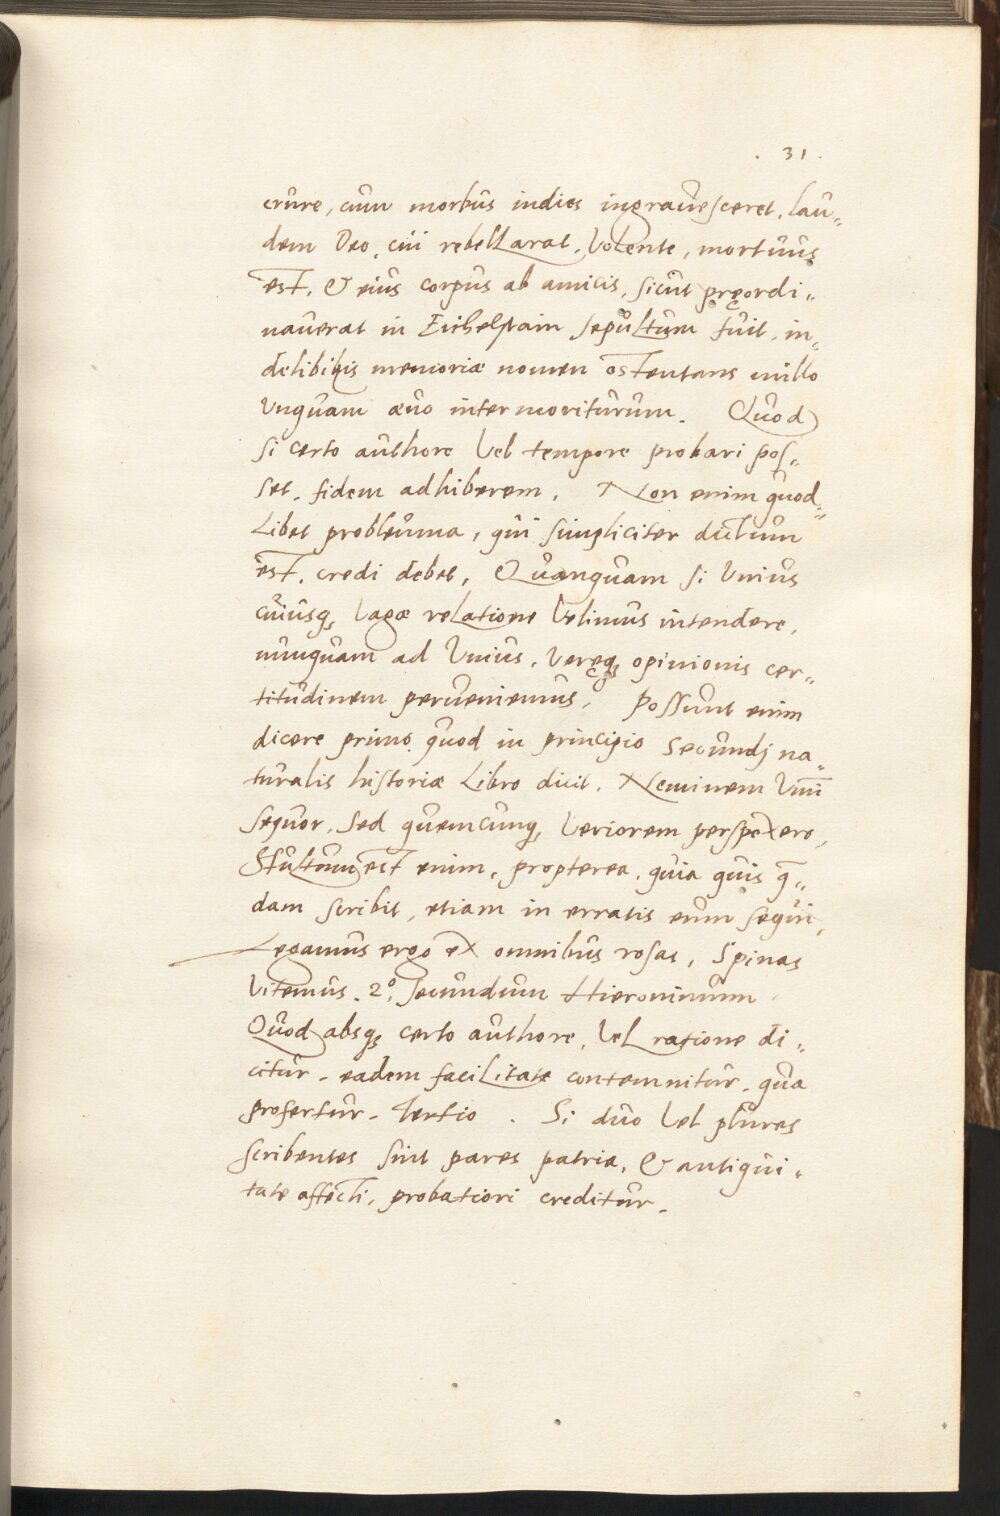 . 31 .
crure, cum morbus indies ingrauesceret, lau„
dem Deo, cui rebellarat, Volente, mortuus
est, & eius corpus ab amicis, sicut pręordi„
nauerat in Eichelstain sepultum fuit, in„
delibilis memoriæ nomen ostentans nullo
Vnquam æuo intermoriturum. Quod
si certo authore Vel tempore probari pos„
set, fidem adhiberem. Non enim quod„
Libet probleuma, qui simpliciter dictum
est, credi debet, Quanquam si Vnius
cuiusq3 Vagæ relatione Velimus intendere,
nunquam ad Vnius, Veręq3 opinionis cer„
titudinem perueniemus, Possunt enim
dicere primo quod in principio Secundj na„
turalis historiæ Libro dicit, Neminem Vnū
sequor, sed quemcunq3 Veriorem perspexero,
Stultum est enim, propterea, quia quis q̄„
dam scribit, etiam in erratis eum sequi,
Legamus ergo ex omnibus rosas, Spinas
Vitemus. 2.º Secundum Hieroninum
Quod absq3 certo authore, Vel ratione di„
citur, eadem facilitate contemnitur, qua
profertur. Tertio . Si duo Vel plures
scribentes sint pares patria, & antiqui„
tate affecti, probatiori creditur.